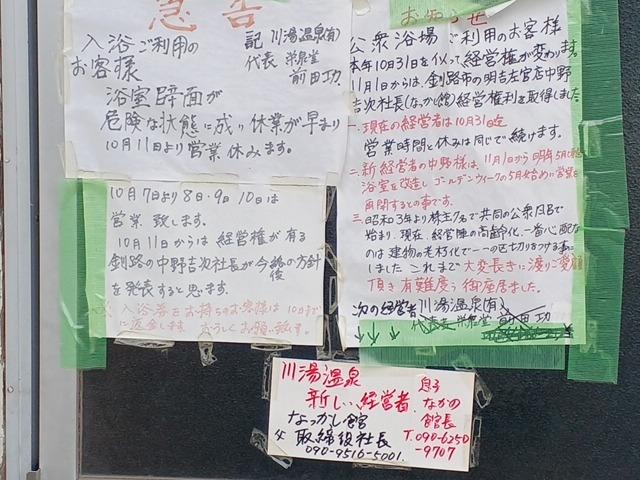 急告
入浴ご利用の
お客様
記 川湯温泉(有)
代表 栄泉堂
前田功
浴室壁面が
危険な状態に成り休業が早まり
10月11日より営業休みます。
10月7日より8日・9日10日は
営業致します。
10月11日からは経営権が有る
釧路の中野吉次社長が今後の方針
を発表すると思います。
入浴券をお持ちのお客様は10日迄
に返金します。よろしくお願い致す。
お知らせ
公衆浴場ご利用のお客様
本年10月31日を以って経営権が変わります。
11月1日からは、釧路市の明吉左官店中野
吉次社長(なかし館)経営権利を取得しました
一.現在の経営者は10月31日迄
営業時間と休みは同じで続けます。
二.新経営者の中野様は、11月1日から明年5月
浴室を改造しゴールデンウィークの5月始めに営業を
再開するとの事です。
三.昭和3年より株主7名で共同の公衆風呂で
始まり、現在、経営陣の高齢化、一番心配な
のは建物の老朽化で一一の区切りをつける事に
しました これまで大変長きに渡りご愛顧
頂き有難度う御座居ました。
次の経営者 川湯温泉(有)
代表 栄泉堂 前田功
川湯温泉
新しい、経営者
なっかし館
取締役社長
090-9516-5001
息子
なかの
館長
T.090-6250
-9707